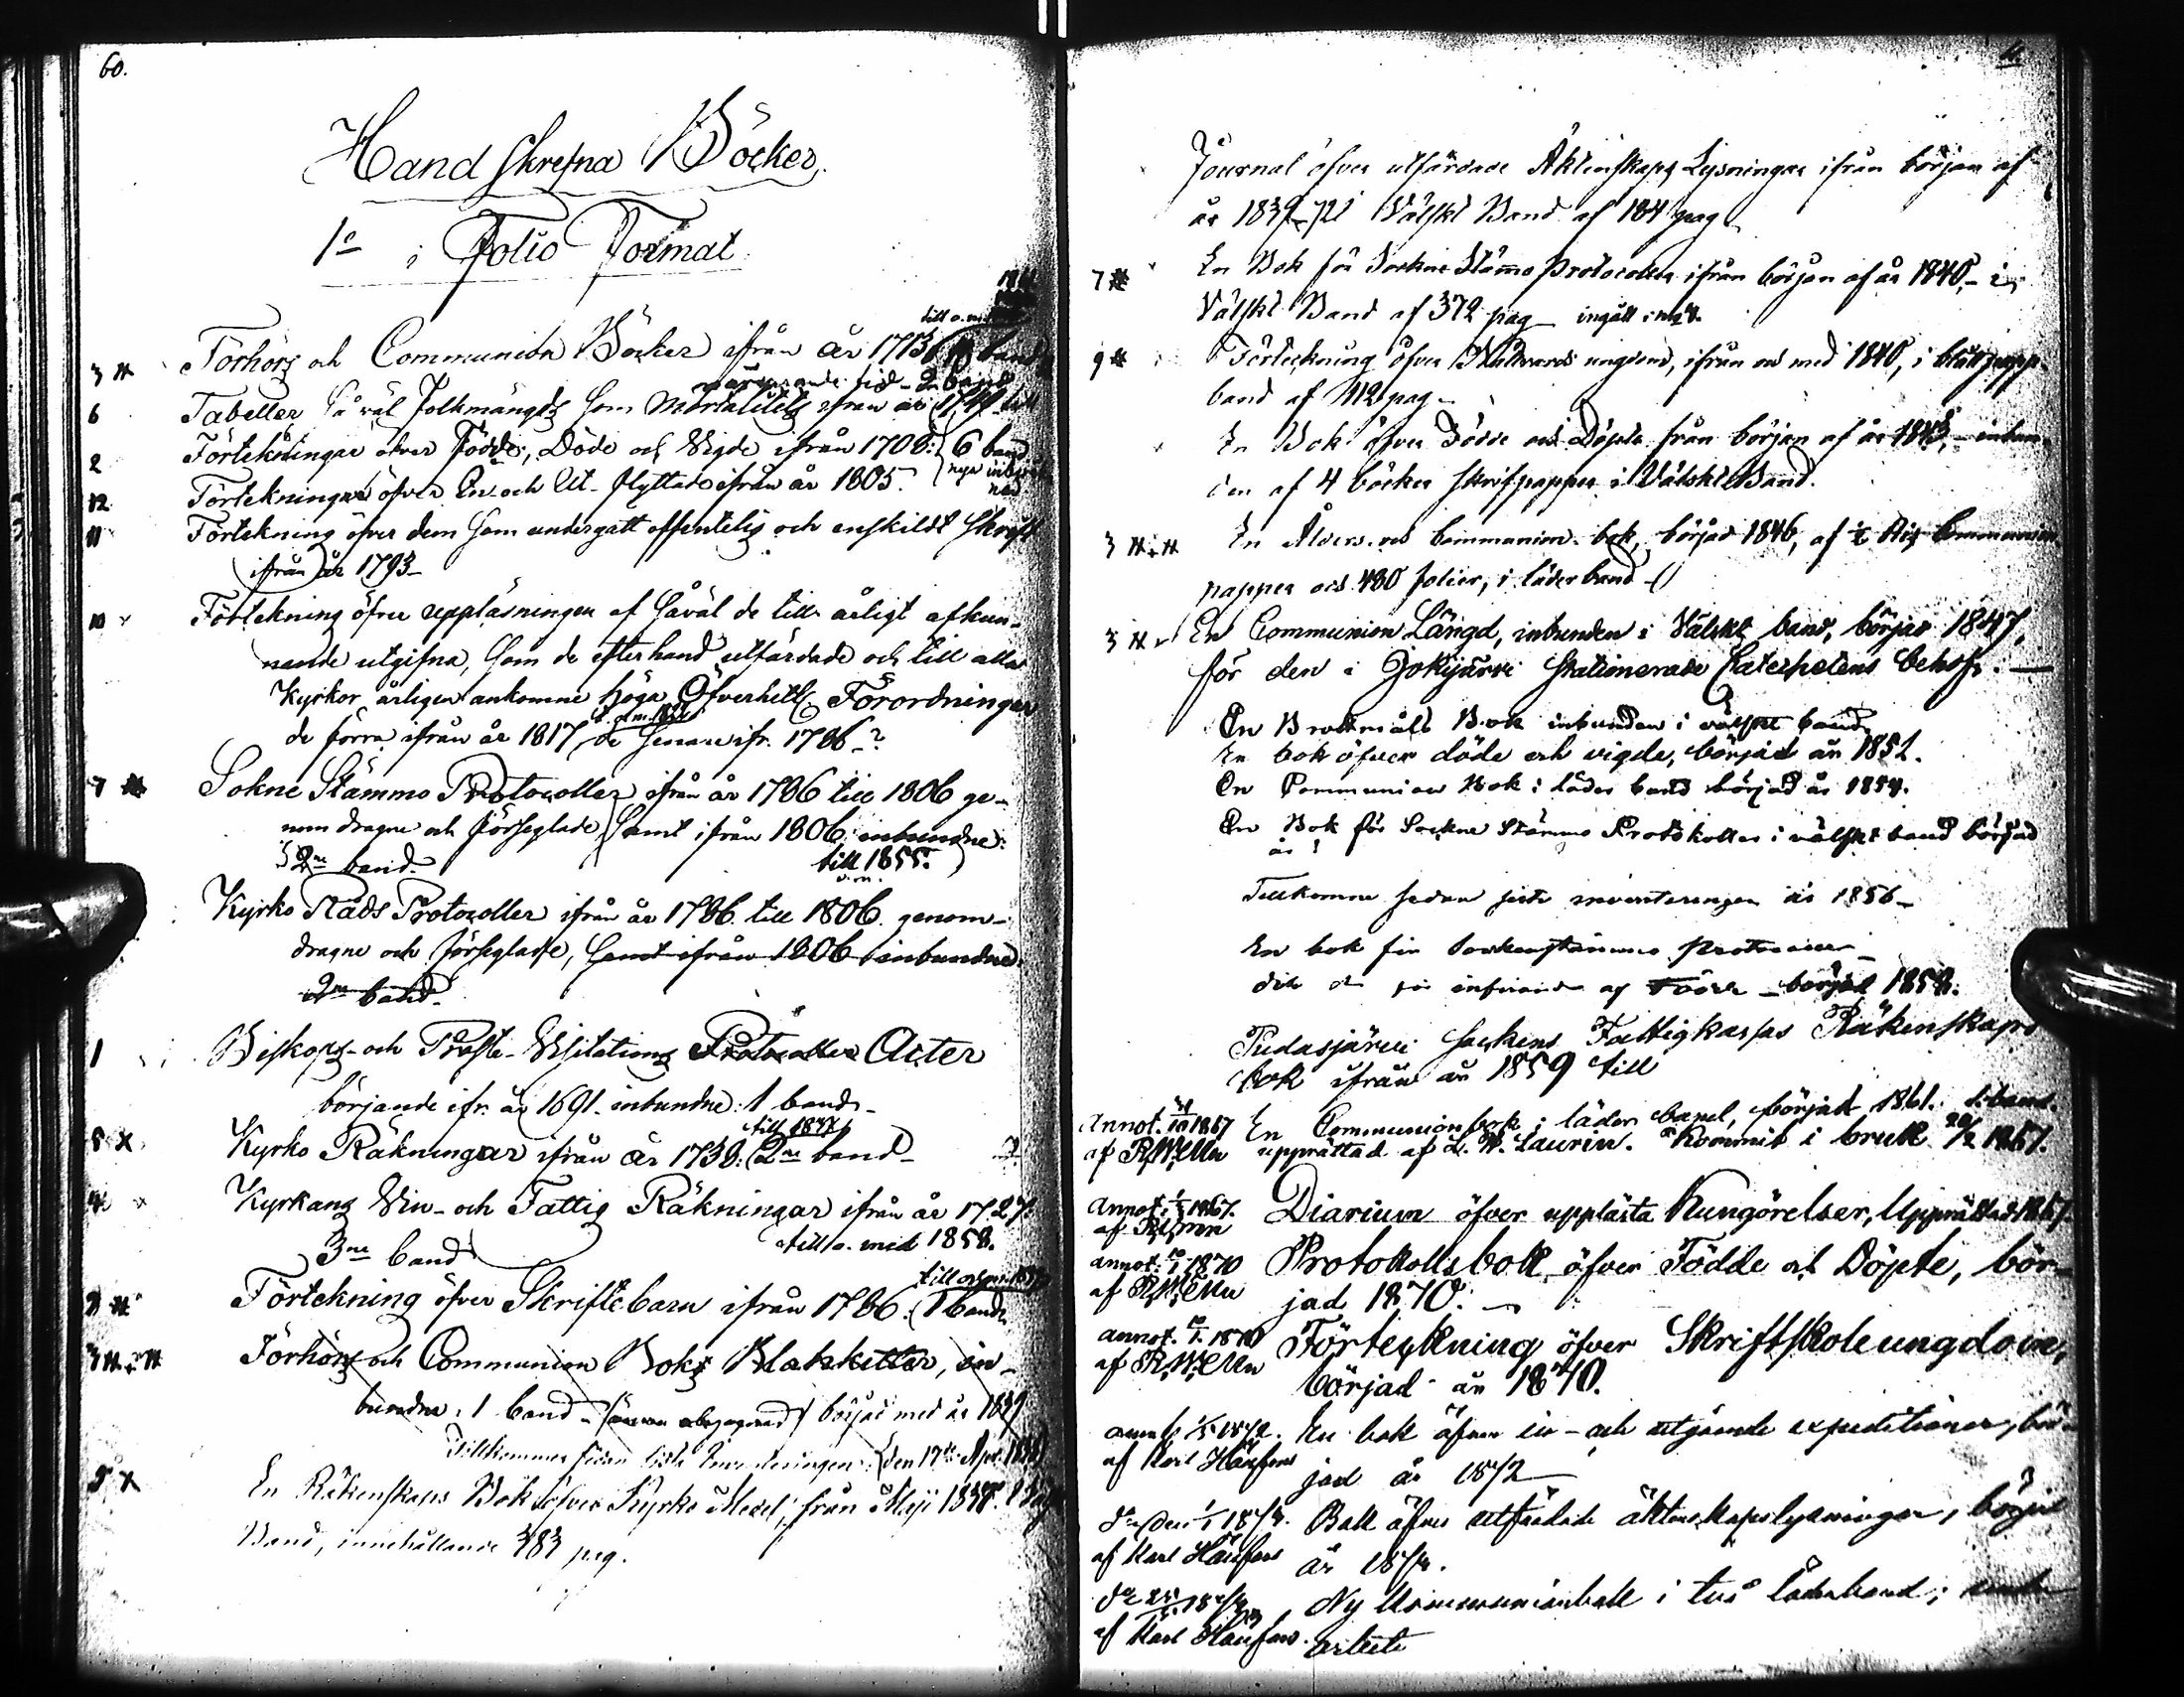 60.
Handskrefna Böcker,
1o i Folio Format
till o. m.
3 # Förhörs och Communion Böcker ifrån år 1713 band
närvarande tid - 2 band
6 Tabeller så väl Folkmängds som Mortalitets ifrån år 1749 till
2 Förtekningar öfver Födde, Döde och Vigde ifrån 1708: 6 band
12 Förtekningar öfver In och Ut-flyttade ifrån år 1805.
11 Förtekning öfver dem som undergått offentelig och enskildt Skrift
ifrån år 1793-
10 Förtekning öfver uppläsningen af såväl de till årligt afkun-
nande utgifna, som de efterhand utfärdade och till alla
Kyrkor årligen ankomne höga Öfverhets Förordningar
de förra ifrån år 1817, de senare ifr. 1786-?
7 # Sokne Stämmo Protocoller ifrån år 1786 till 1806 ge-
nom dragne och förseglade, samt ifrån 1806: inbundne:
2ne band. till 1855.
Kyrko Råds Protocoller ifrån år 1786. till 1806. genom-
dragne och förseglade, samt ifrån 1806 inbundne.
2ne band-
1 Biskops- och Prosts-Visitations Protocoller Acter
börjande ifr. år 1691. inbundne: 1 band-
till 1847
5 x Kyrko Räkningar ifrån år 1738: 2ne band-
4 x Kyrkans Vin- och Fattig Räkningar ifrån år 1727.
3ne band till o. med 1858.
till och med
8 # Förtekning öfver Skriftebarn ifrån 1786. 1 band.
3 #.# Förhörs och Communion Boks Blanketter, in-
bundne: 1 band - börjad med år 1839
Tillkommer sedan sista Inventeringen: den 17de Apr. 1838
5 x En Räkenskaps Bok öfver Kyrko Medel, från Maji 1838.
Band, innehållande 383 pag.
Journal öfver utfärdade Äktenskaps Lysningar ifrån början af
år 1839 - i Välskt Band af 184 pag
7 # En Bok för Sockne Stämmo Protocoller ifrån början af år 1840, - i
Välskt Band af 372 pag - ingått i
9 # Förteckning öfver Nattvards ungdom, ifrån och med 1840, i blått papp-
band af 112 pag-
En Bok öfver Födde och Döpte från början af år 1843, - inbun-
den af 4 böcker skrifpapper i Välskt Band.
3 #.# En Ålders. och Communion. bok, börjad 1846, af ½ Ris Communion
papper och 480 folier, i läderband-
3 # En Communion Längd, inbunden i Välskt band, börjad 1847,
för den i Jokijärvi stationerade Catechetens behof. -
En Brottmåls Bok inbunden i välskt band,
En bok öfver döde och vigde, börjad år 1852.
En Communion Bok i läder band börjad år 1854.
En Bok för Sockne Stämmo Protokoller i välskt band börjad
år
Tillkomne sedan sista inventeringen år 1856-
En bok för Sockenstämmo Protocoller
dito börjad 1858.
Pudasjärvi Sockens Fattigkassas Räkenskaps
bok ifrån år 1859 till
Annot. 1867 En Communionbok i läder band, börjad 1861.
af upprättad af L. W. Laurin. Kommit i bruk 20/2 1867.
Annot. 1867. Diarium öfver upplästa Kungörelser, Upprättad 1867.
af
annot. 1870 Protokollsbok öfver Födde och Döpte, bör-
af jad 1870. -
annot. 1870 Förteckning öfver Skriftskoleungdom,
af börjad år 1870.
annot. 1872. En bok öfver in- och utgående expeditioner, bör-
af Karl jad år 1872
Bok öfver utfärdade äktenskapslysningar, börjad
af Karl år
Ny Kommunionbok i två läderband; under
af Karl arbete